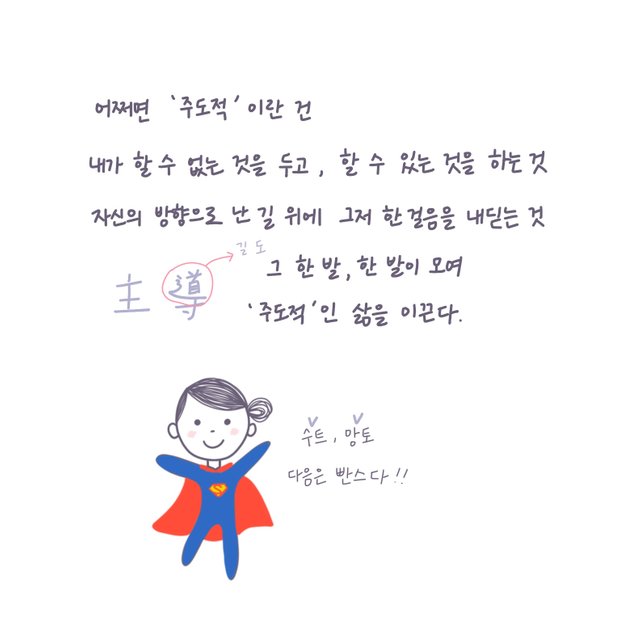 어쩌면 '주도적'이란 건
내가 할 수 없는 것을 두고, 할 수 있는 것을 하는 것
자신의 방향으로 난 길 위에 그저 한 걸음을 내딛는 것
길 도
그 한 발, 한 발이 모여
主 導
'주도적'인 삶을 이끈다.
수트, 망토
다음은 빤스다!!
S